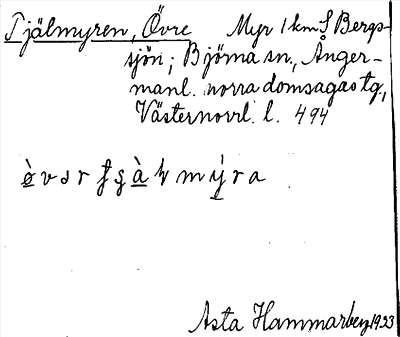 Tjälmyren, Övre Myr 1 km S Bergs-
sjön; Björna sn., Ånger-
manl. norra domsagas tg.,
Västernorrl. l. 494
Asta Hammarberg 1933